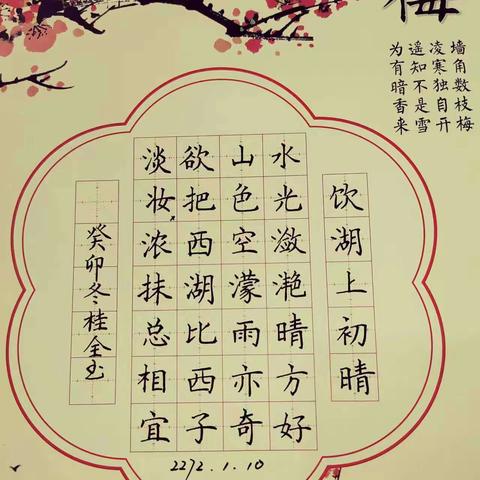 梅
墙角数枝梅
凌寒独自开
遥知不是雪
为有暗香来
饮湖上初晴
水光潋滟晴方好
山色空濛雨亦奇
欲把西湖比西子
淡妆浓抹总相宜
癸卯冬桂全玉
2272.1.10